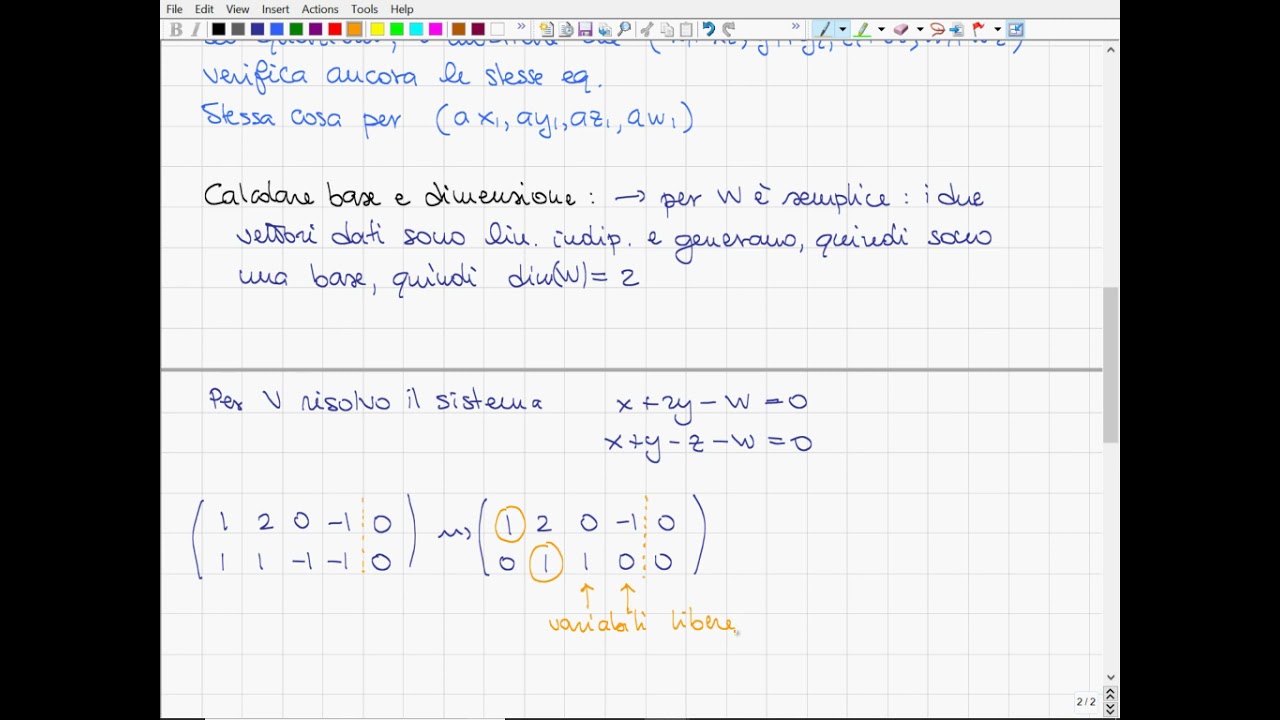 File Edit View Insert Actions Tools Help
verifica ancora le stesse eq.
Stessa cosa per (ax₁, ay₁, az₁, aw₁)
Calcolare base e dimensione : → per W è semplice : i due
vettori dati sono lin. indip. e generano, quindi sono
una base, quindi dim(W) = 2
Per V risolvo il sistema x + 2y - w = 0
x + y - z - w = 0
1 2 0 -1 0 ⇝ 1 2 0 -1 0
1 1 -1 -1 0 0 1 1 0 0
↑ ↑
variabili libere
2 / 2